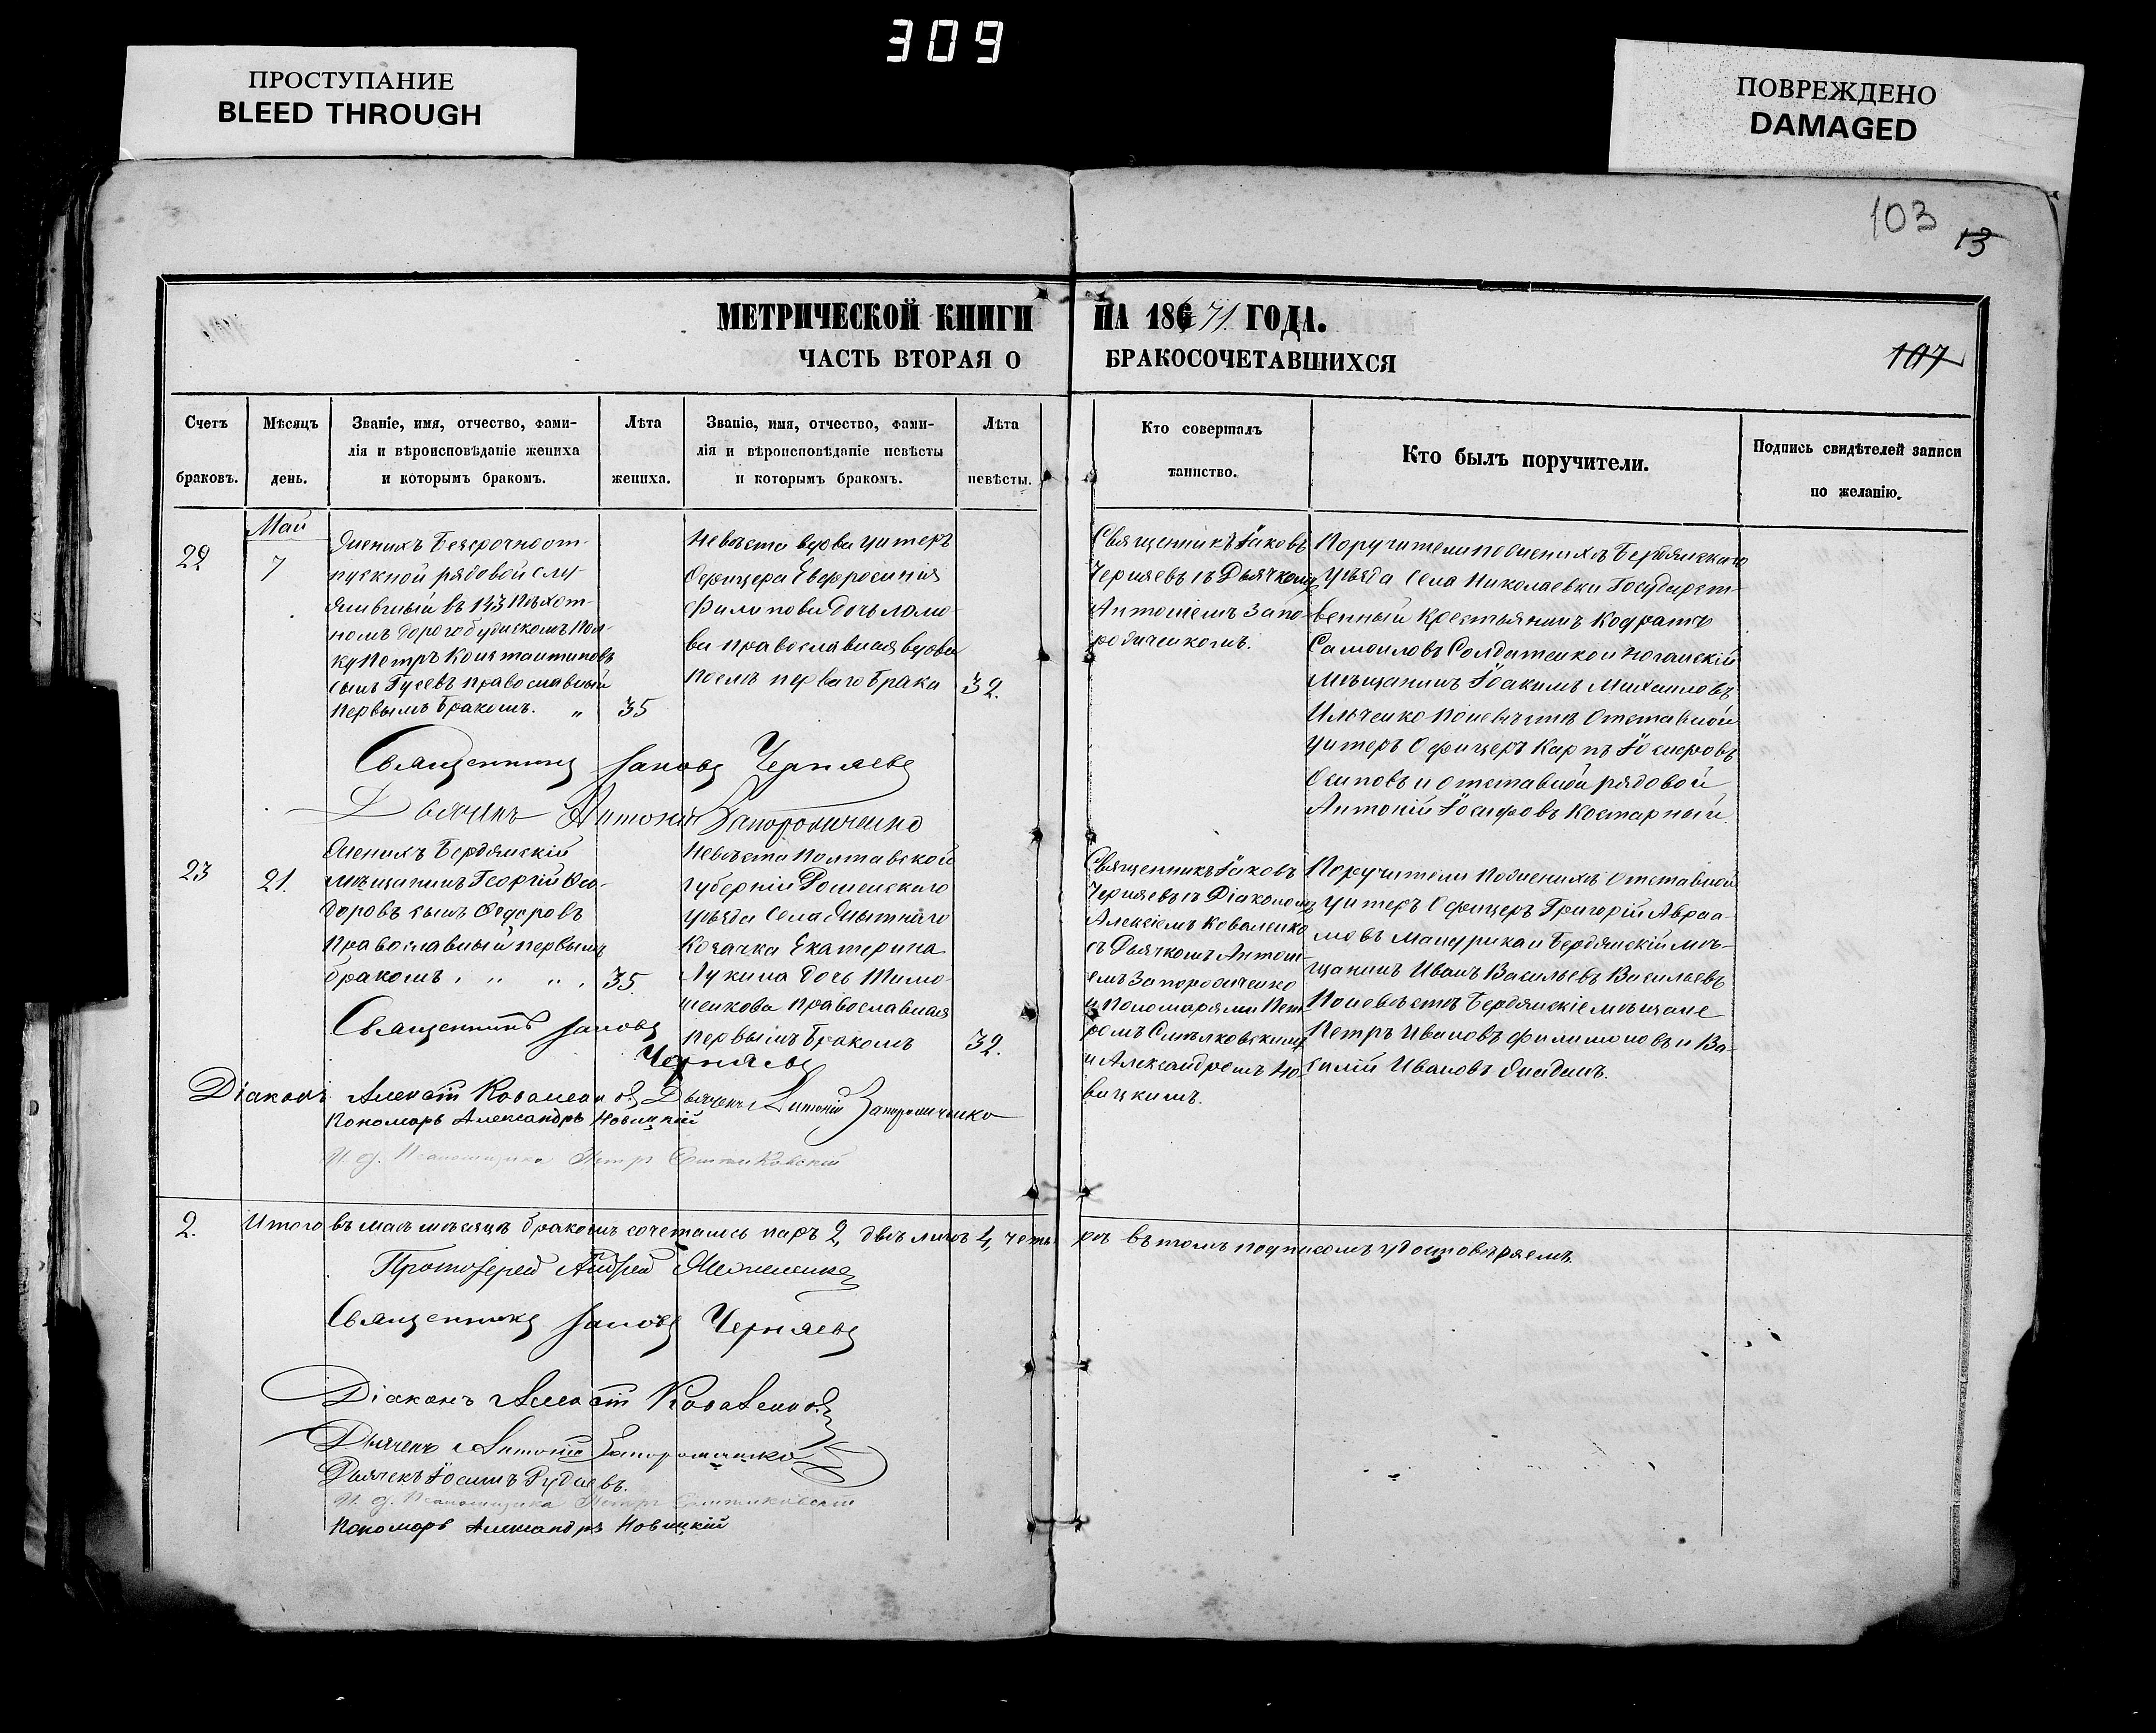 309
ПРОСТУПАНИЕ
BLEED THROUGH
ПОВРЕЖДЕНО
DAMAGED
103
13
МЕТРИЧЕСКОЙ КНИГИ НА 186 71. ГОДА.
ЧАСТЬ ВТОРАЯ О БРАКОСОЧЕТАВШИХСЯ
107
Счетъ
браковъ.
Мѣсяцъ
день.
Званіе, имя, отчество, фами-
лія и вѣроисповѣданіе жениха
и которымъ бракомъ.
Лѣта
жениха.
Званіе, имя, отчество, фами-
лія и вѣроисповѣданіе невѣсты
и которымъ бракомъ.
Лѣта
невѣсты.
Кто совершалъ
таинство.
Кто былъ поручители.
Подпись свидѣтелей записи
по желанію.
22
Май
7
Женихъ безсрочноот-
пускной рядовой слу-
жившій въ 143 Пѣхот-
номъ Дорогобужскомъ Пол-
ку Петръ Константиновъ
сынъ Гусевъ православный
первымъ бракомъ. „
35
Невѣста вдова унтеръ
Офицера Евфросинія
Филипова дочь
ва православная вдова
послѣ перваго брака
32.
Священникъ Іаковъ
Черняевъ съ Дьячкомъ
Антоніемъ Запо-
рожченкомъ.
Поручители по женихѣ Бердянскаго
уѣзда села Николаевки Государст-
венный крестьянинъ Кодратъ
Самоиловъ Солдатенко и Ногайскій
мѣщанинъ Іоакимъ Михаиловъ
Ильченко по невѣстѣ Отставной
унтеръ Офицеръ Карпъ Іосифовъ
Осиповъ и отставной рядовой
Антоній Іосифовъ Костарный.
Священникъ Іаковъ Черняевъ
Дьячекъ Антоній Запорожченко
23
21.
Женихъ Бердянскій
мѣщанинъ Георгій Ѳео-
доровъ сынъ Ѳедоровъ
православный первымъ
бракомъ
35.
Невѣста Полтавской
губерніи Роменскаго
уѣзда села
Козачка Екатерина
Лукина дочь Тимо-
шенкова православная
первымъ бракомъ
32.
Священникъ Іаковъ
Черняевъ съ Діакономъ
Алексіемъ Коваленко
съ Дьячкомъ Антоні-
емъ Запорожченко
и Пономарями Пет-
ромъ
и Александромъ Но-
вицкимъ.
Поручители по женихѣ Отставной
унтеръ Офицеръ Григорій Авраа-
мовъ и Бердянскій мѣ-
щанинъ Иванъ Васильевъ Васильевъ
По невѣстѣ Бердянскіе мѣщане
Петръ Ивановъ Филимоновъ и Ва-
силій Ивановъ
Священникъ Іаковъ
Черняевъ
Діаконъ Алексій Коваленковъ Дьячекъ Антоній Запорожченко
Пономарь Александръ Новицкій
И. д. Псаломщика Петръ
2.
Итого въ маѣ мѣсяцѣ бракомъ сочеталось паръ 2, двѣ лицъ 4, четы-ре въ томъ подписомъ удостовѣряемъ.
Протоіерей Андрей
Священникъ Іаковъ Черняевъ
Діаконъ Алексій Коваленковъ
Дьячекъ Антоній Запорожченко
Дьячекъ
И. д. Псаломщика Петръ
Пономарь Александръ Новицкій